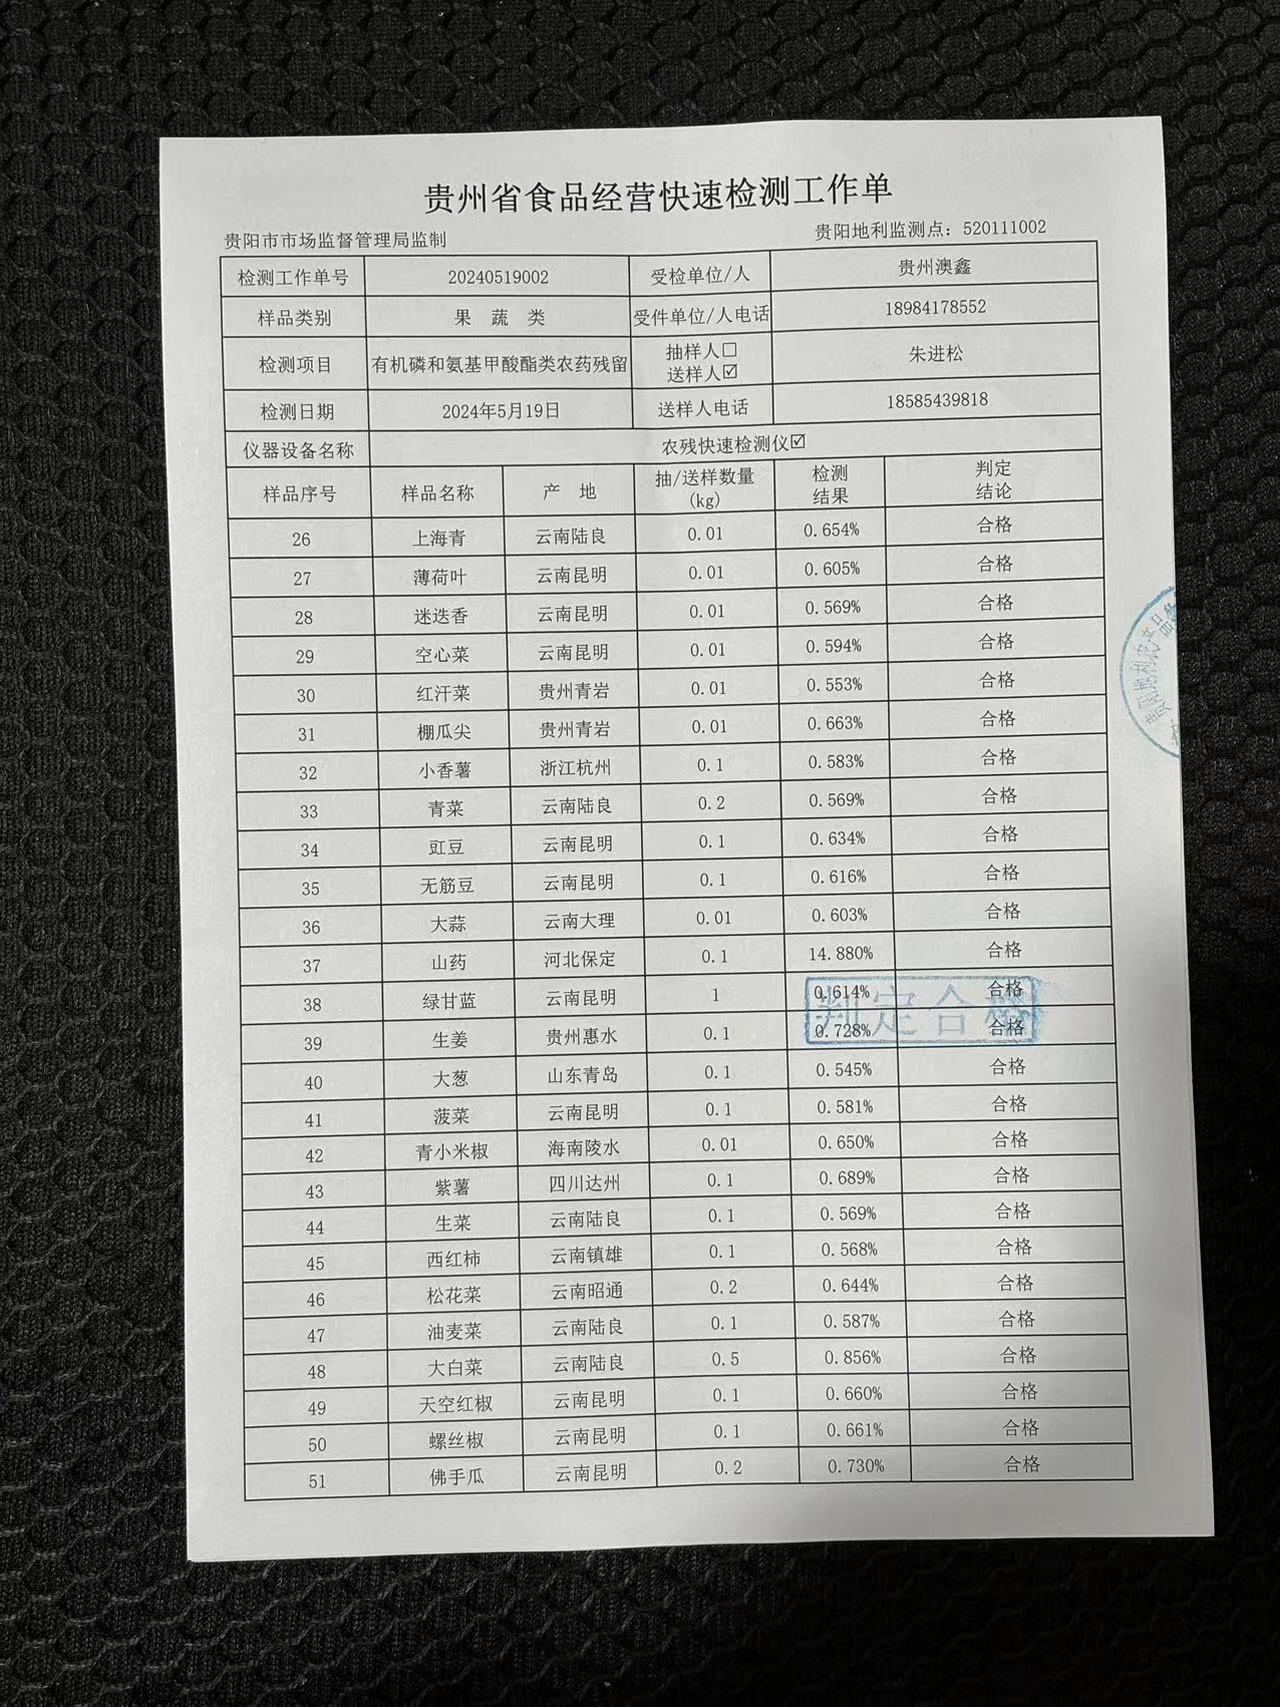 贵州省食品经营快速检测工作单
贵阳市市场监督管理局监制 贵阳地利监测点：520111002
检测工作单号 20240519002 受检单位/人 贵州澳鑫
样品类别 果 蔬 类 受件单位/人电话 18984178552
检测项目 有机磷和氨基甲酸酯类农药残留 抽样人☐ 送样人☑ 朱进松
检测日期 2024年5月19日 送样人电话 18585439818
仪器设备名称 农残快速检测仪☑
样品序号 样品名称 产 地 抽/送样数量(kg) 检测结果 判定结论
26 上海青 云南陆良 0.01 0.654% 合格
27 薄荷叶 云南昆明 0.01 0.605% 合格
28 迷迭香 云南昆明 0.01 0.569% 合格
29 空心菜 云南昆明 0.01 0.594% 合格
30 红汗菜 贵州青岩 0.01 0.553% 合格
31 棚瓜尖 贵州青岩 0.01 0.663% 合格
32 小香薯 浙江杭州 0.1 0.583% 合格
33 青菜 云南陆良 0.2 0.569% 合格
34 豇豆 云南昆明 0.1 0.634% 合格
35 无筋豆 云南昆明 0.1 0.616% 合格
36 大蒜 云南大理 0.01 0.603% 合格
37 山药 河北保定 0.1 14.880% 合格
38 绿甘蓝 云南昆明 1 0.614% 合格
判定合格
39 生姜 贵州惠水 0.1 0.728% 合格
40 大葱 山东青岛 0.1 0.545% 合格
41 菠菜 云南昆明 0.1 0.581% 合格
42 青小米椒 海南陵水 0.01 0.650% 合格
43 紫薯 四川达州 0.1 0.689% 合格
44 生菜 云南陆良 0.1 0.569% 合格
45 西红柿 云南镇雄 0.1 0.568% 合格
46 松花菜 云南昭通 0.2 0.644% 合格
47 油麦菜 云南陆良 0.1 0.587% 合格
48 大白菜 云南陆良 0.5 0.856% 合格
49 天空红椒 云南昆明 0.1 0.660% 合格
50 螺丝椒 云南昆明 0.1 0.661% 合格
51 佛手瓜 云南昆明 0.2 0.730% 合格